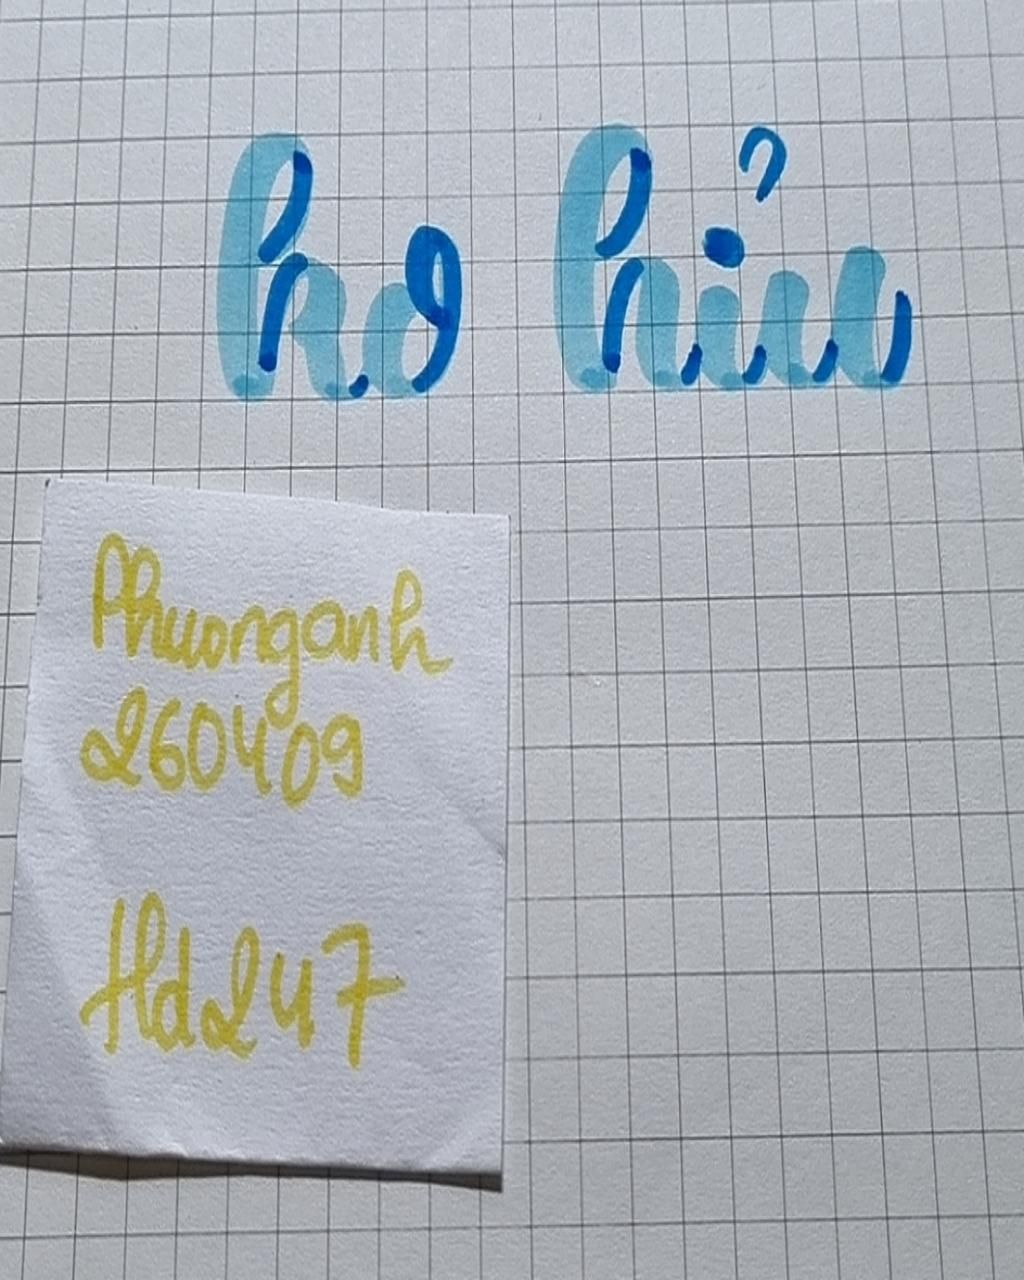 hơ hỉu
Phuonganh
260409
Hd247